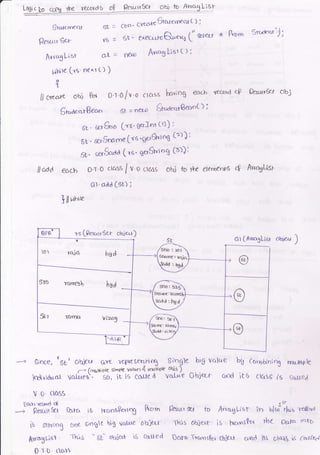 Logic to copy the records of ResultSet obj to ArrayList
Statement st = con.createStatement();
ResultSet rs = st.executeQuery("select * from Student");
ArrayList al = new ArrayList();
while (rs.next())
{
// create obj for D.T.O/V.O class having each record of ResultSet obj
StudentBean st = new StudentBean();
st.setSno (rs.getInt(1));
st.setSname (rs.getString(2));
st.setSadd (rs.getString(3));
// add each D.T.O class / V.O class obj to the elements of ArrayList
al.add(st);
} // while
rs (ResultSet object)
st
al (ArrayList object)
BFR
101 raja hyd
sno : 101
sname : raja
sadd : hyd
st
535 ramesh hyd
sno : 535
sname : ramesh
sadd : hyd
st
567 ramu vizag
st
ALR
→ Since, 'st' object are representing single big value by combining multiple
(multiple simple values / multiple objs)
individual values. So, it is called value object and its class is called
V.O class
each record of
→ ResultSet Data is transferring from ResultSet to ArrayList in
is storing one single big value object. This object is transfer the Data into
ArrayList. This "st" object is called Data Transfer Object and its class is called
D.T.O class